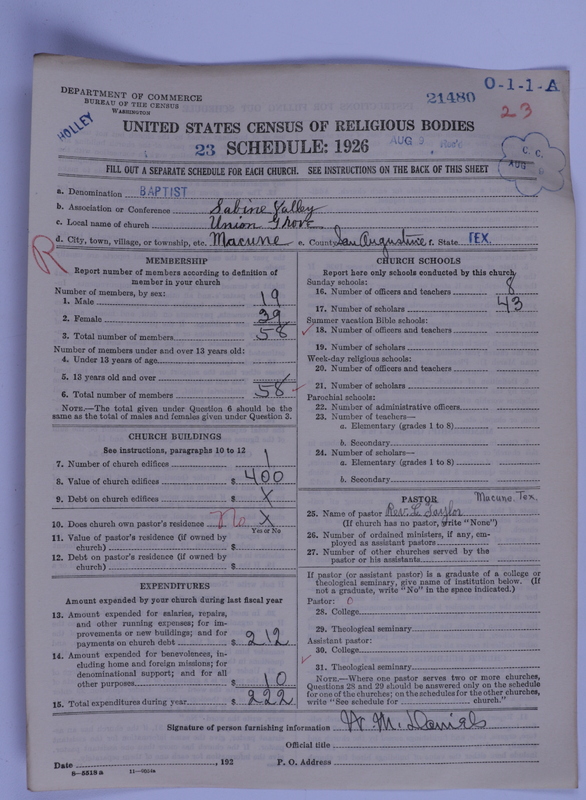 DEPARTMENT OF COMMERCE
BUREAU OF THE CENSUS
WASHINGTON
HOLLEY
21480
0-1-1-A
23
UNITED STATES CENSUS OF RELIGIOUS BODIES
23 SCHEDULE: 1926
AUG 9
C. C.
AUG
FILL OUT A SEPARATE SCHEDULE FOR EACH CHURCH. SEE INSTRUCTIONS ON THE BACK OF THIS SHEET
a. Denomination BAPTIST
b. Association or Conference Sabine Valley
c. Local name of church Union Grove
d. City, town, village, or township, etc. Macune e. County San Augustine f. State TEX.
R
MEMBERSHIP
Report number of members according to definition of
member in your church
Number of members, by sex:
1. Male 19
2. Female 39
3. Total number of members 58
Number of members under and over 13 years old:
4. Under 13 years of age
5. 13 years old and over
6. Total number of members 58
NOTE.—The total given under Question 6 should be the
same as the total of males and females given under Question 3.
CHURCH BUILDINGS
See instructions, paragraphs 10 to 12
7. Number of church edifices 1
8. Value of church edifices $ 400
9. Debt on church edifices $ X
10. Does church own pastor's residence No X
Yes or No
11. Value of pastor's residence (if owned by
church) $
12. Debt on pastor's residence (if owned by
church) $
EXPENDITURES
Amount expended by your church during last fiscal year
13. Amount expended for salaries, repairs,
and other running expenses; for im-
provements or new buildings; and for
payments on church debt $ 212
14. Amount expended for benevolences, in-
cluding home and foreign missions; for
denominational support; and for all
other purposes $ 10
15. Total expenditures during year $ 222
CHURCH SCHOOLS
Report here only schools conducted by this church
Sunday schools:
16. Number of officers and teachers 8
17. Number of scholars 43
Summer vacation Bible schools:
18. Number of officers and teachers
19. Number of scholars
Week-day religious schools:
20. Number of officers and teachers
21. Number of scholars
Parochial schools:
22. Number of administrative officers
23. Number of teachers—
a. Elementary (grades 1 to 8)
b. Secondary
24. Number of scholars—
a. Elementary (grades 1 to 8)
b. Secondary
PASTOR Macune. Tex.
25. Name of pastor Rev. L. Taylor
(If church has no pastor, write "None")
26. Number of ordained ministers, if any, em-
ployed as assistant pastors
27. Number of other churches served by the
pastor or his assistants
If pastor (or assistant pastor) is a graduate of a college or
theological seminary, give name of institution below. (If
not a graduate, write "No" in the space indicated.)
Pastor: 0
28. College
29. Theological seminary
Assistant pastor:
30. College
31. Theological seminary
NOTE.—Where one pastor serves two or more churches,
Questions 28 and 29 should be answered only on the schedule
for one of the churches; on the schedules for the other churches,
write "See schedule for church."
Signature of person furnishing information W. M. Daniels
Official title
Date , 192 P. O. Address
8—5518 a